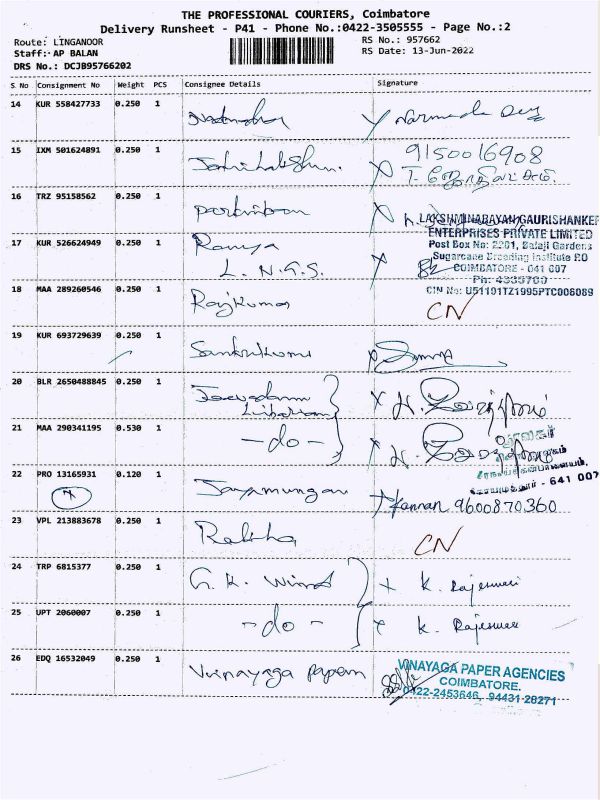 THE PROFESSIONAL COURIERS, Coimbatore
Delivery Runsheet - P41 - Phone No.:0422-3505555 - Page No.:2
Route: LINGANOOR
Staff: AP BALAN
DRS No.: DCJB95766202
RS No.: 957662
RS Date: 13-Jun-2022
S. No Consignment No Weight PCS Consignee Details Signature
14 KUR 558427733 0.250 1
15 IXM 501624891 0.250 1 9150016908
16 TRZ 95158562 0.250 1
LAKSHMINARAYAN GAURISHANKER
ENTERPRISES PRIVATE LIMITED
17 KUR 526624949 0.250 1 Ramya
L. N. G. S.
Post Box No: 2201, Balaji Gardens
Sugarcane Breeding Institute P.O
COIMBATORE - 641 007
Ph: 4335700
CIN No: U51101TZ1995PTC006089
18 MAA 289260546 0.250 1 Rajkumar CN
19 KUR 693729639 0.250 1
20 BLR 2650488845 0.250 1
21 MAA 290341195 0.530 1 - do -
22 PRO 13165931 0.120 1 Jayamurugan T. Kannan 9600870360
- 641 007
23 VPL 213883678 0.250 1 Raksha CN
24 TRP 6815377 0.250 1 G. K. Wind K. Rajeswari
25 UPT 2060007 0.250 1 - do - K. Rajeswari
26 EDQ 16532049 0.250 1 Vinayaga papers
VINAYAGA PAPER AGENCIES
COIMBATORE.
0422-2453646, 94431-28271